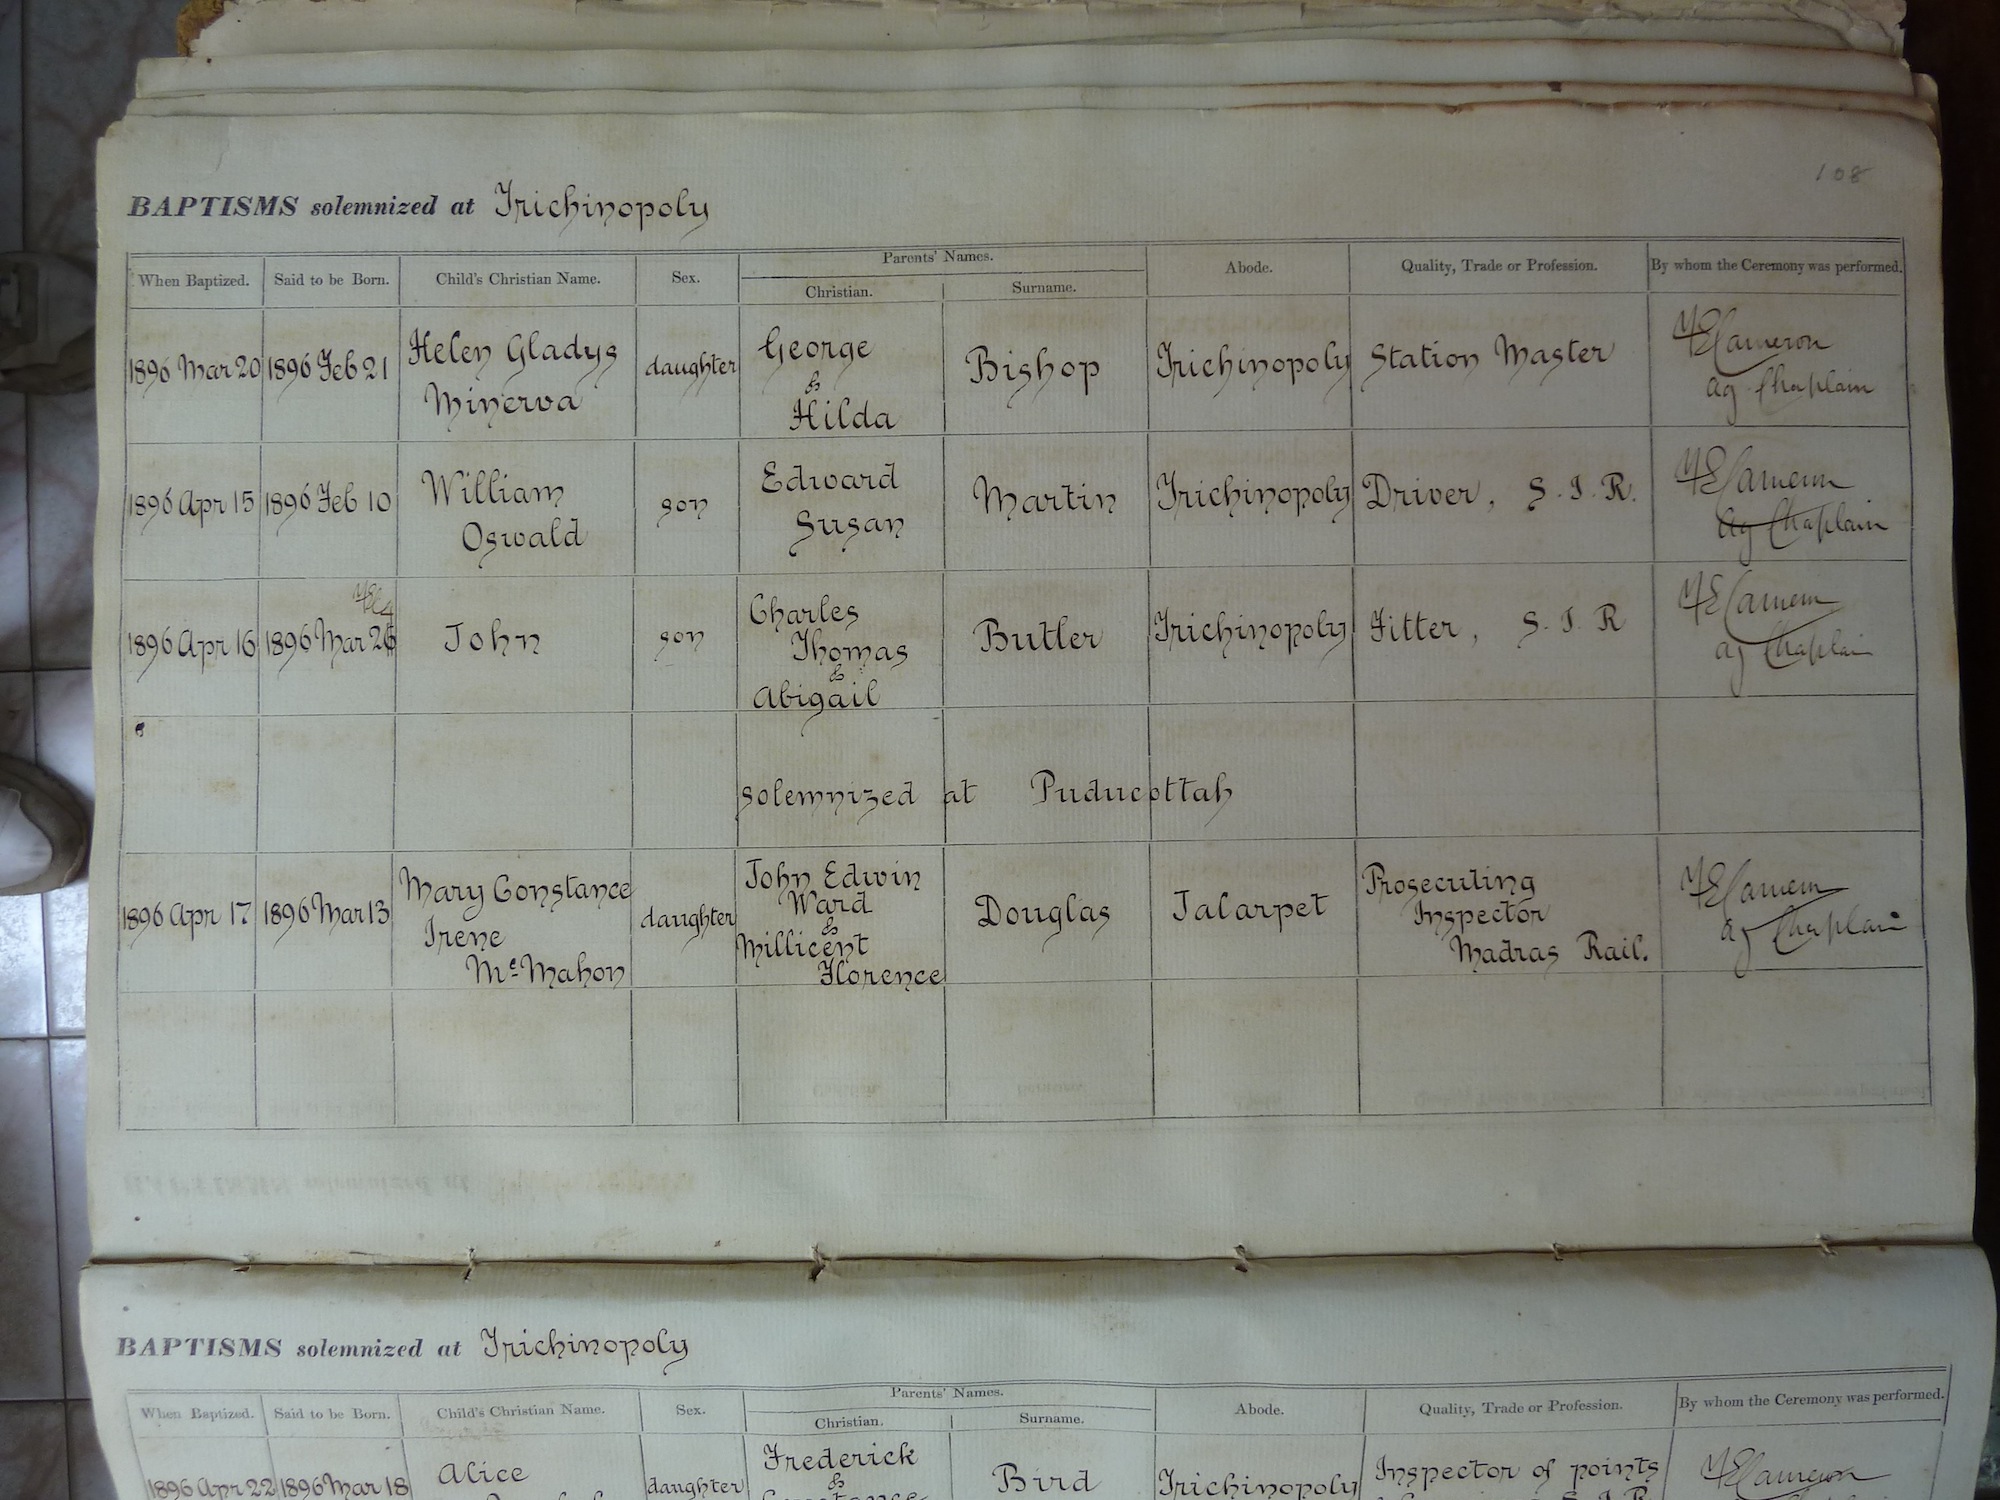 108
BAPTISMS solemnized at Trichinopoly
When Baptized. Said to be Born. Child's Christian Name. Sex. Parents' Names. Abode. Quality, Trade or Profession. By whom the Ceremony was performed.
Christian. Surname.
1896 Mar 20 1896 Feb 21 Helen Gladys daughter George Bishop Trichinopoly Station Master M E Cameron
Minerva & Hilda ag Chaplain
1896 Apr 15 1896 Feb 10 William son Edward Martin Trichinopoly Driver, S. I. R. M E Cameron
Oswald Susan ag Chaplain
1896 Apr 16 1896 Mar 24 John son Charles Butler Trichinopoly Fitter, S. I. R M E Cameron
Thomas ag Chaplain
&
Abigail
solemnized at Puducottah
1896 Apr 17 1896 Mar 13 Mary Constance daughter John Edwin Douglas Jalarpet Prosecuting M E Cameron
Irene Ward Inspector ag Chaplain
McMahon & Madras Rail.
Millicent
Florence
BAPTISMS solemnized at Trichinopoly
When Baptized. Said to be Born. Child's Christian Name. Sex. Parents' Names. Abode. Quality, Trade or Profession. By whom the Ceremony was performed.
Christian. Surname.
1896 Apr 22 1896 Mar 18 Alice daughter Frederick Bird Trichinopoly Inspector of points M E Cameron
& S. I. R